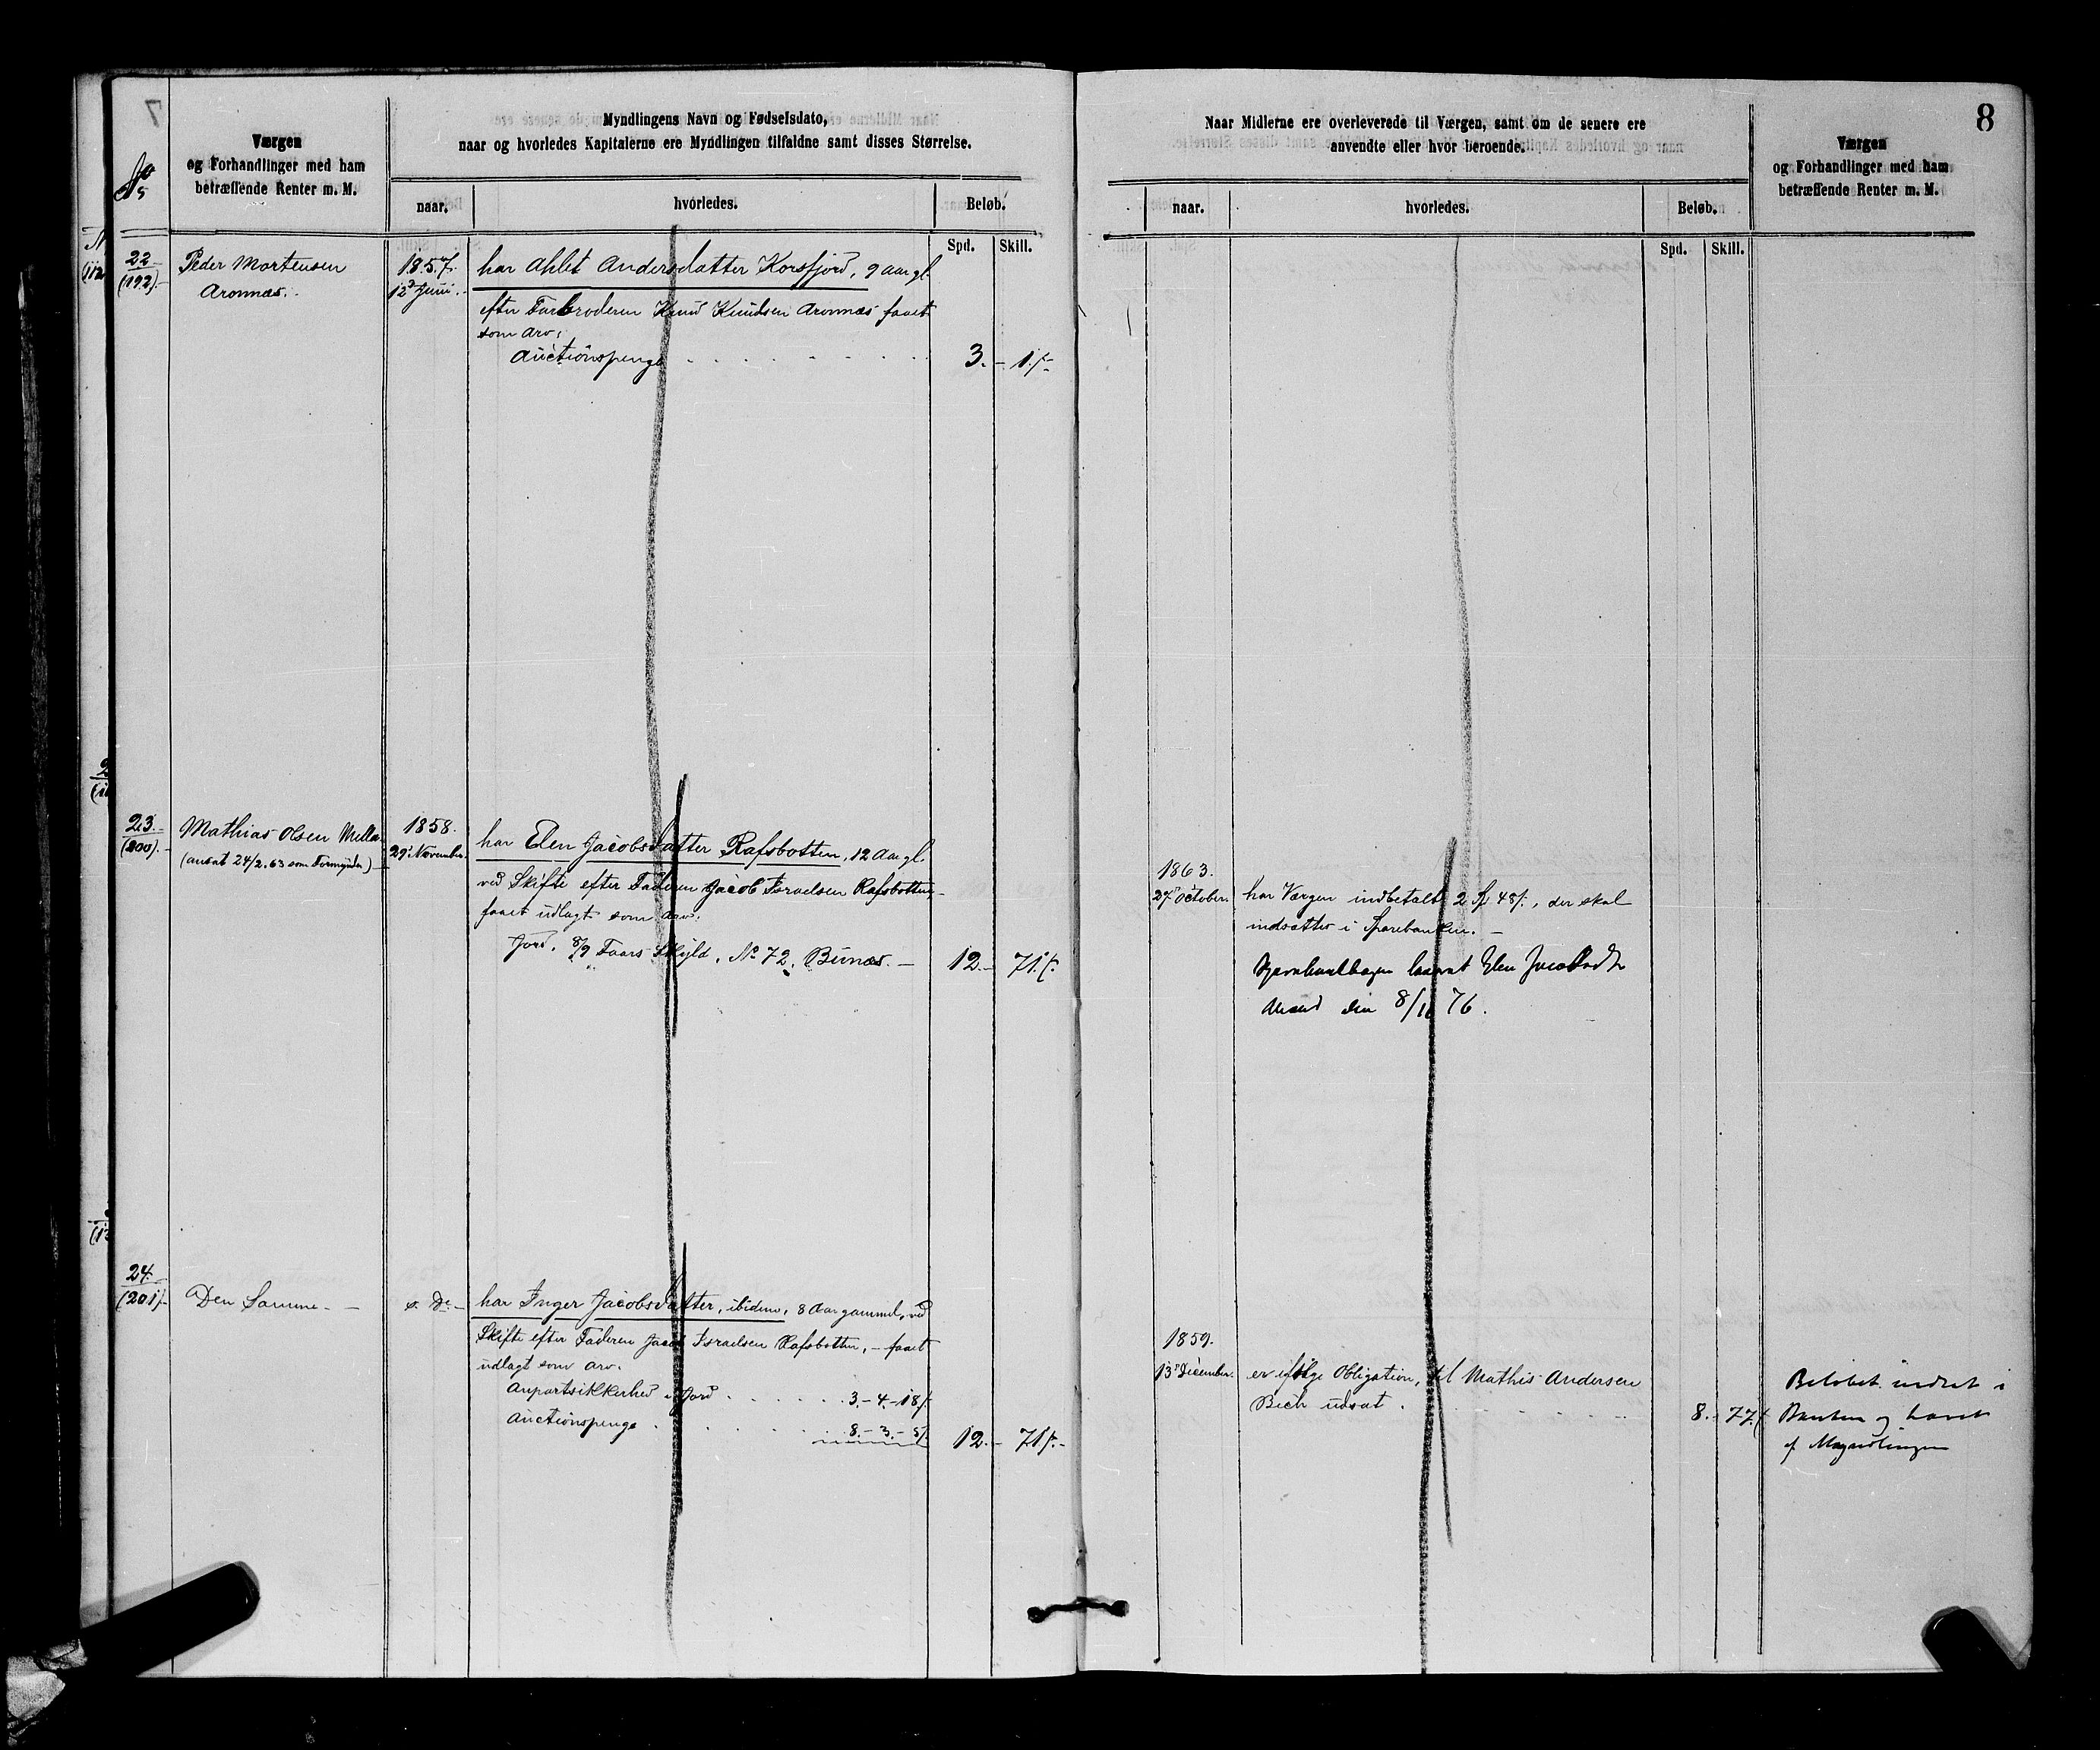 8
No
Værgen
og Forhandlinger med ham
betræffende Renter m. M.
Myndlingens Navn og Fødselsdato,
naar og hvorledes Kapitalerne ere Myndlingen tilfaldne samt disses Størrelse.
naar.
hvorledes.
Beløb.
Spd.
Skill.
22
(192).
Peder Mortensen
Aronnæs.
1857.
12 Juni.
har Ahlet Andersdatter Korsfjord, 9 Aar gl.
efter Farbroderen Knud Knudsen Aronnæs faaet
som Arv,
Auctionspenge
3. - 1 /-
23.
(200).
Mathias Olsen Mella
(ansat 24/2. 63 som Formynder)
1858.
29 November.
har Elen Jacobsdatter Rafsbotten, 12 Aar gl.
ved Skifte efter Faderen Jacob Israelsen Rafsbotten,
faaet udlagt som Arv.
Jord. 8/9 Faars Skyld, No 72, Bünæs. -
12. - 71 /.
24.
(201).
Den Samme. -
s. D. -
har Inger Jacobsdatter, ibidem, 8 Aar gammel, ved
Skifte efter Faderen Jacob Israelsen Rafsbotten, - faaet
udlagt som Arv.
Anpartsikkerhed i Jord . . . . 3. - 4. - 18 /.
Auctionspenge . . . . 8. - 3. - 5 /.
12. - 71 /. -
Naar Midlerne ere overleverede til Værgen, samt om de senere ere
anvendte eller hvor beroende.
naar.
hvorledes.
Beløb.
Spd.
Skill.
Værgen
og Forhandlinger med ham
betræffende Renter m. M.
1863.
27 October.
har Værgen indbetalt 2 Sp 48 /., der skal
indsættes i Sparebanken. -
Elen Jacobsdtr
den 8/11 76.
1859.
13 December.
er ifølge Obligation, til Mathis Andersen
Bech udsat .
8. - 77 /.
Beløbet indsat i
Banken og hævet
af Myndlingen